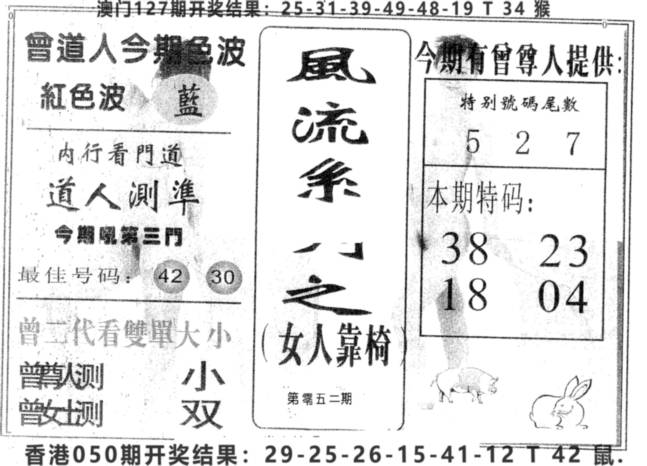 澳门127期开奖结果：25-31-39-49-48-19 T 34 猴
曾道人今期色波
紅色波 藍
内行看門道
道人測準
今期吼第三門
最佳号码： 42 30
曾二代看雙單大小
曾尊人测 小
曾女士测 双
風
流
系
之
（女人靠椅）
第零五二期
今期有曾尊人提供：
特别號碼尾數
5 2 7
本期特码：
38 23
18 04
香港050期开奖结果：29-25-26-15-41-12 T 42 鼠.